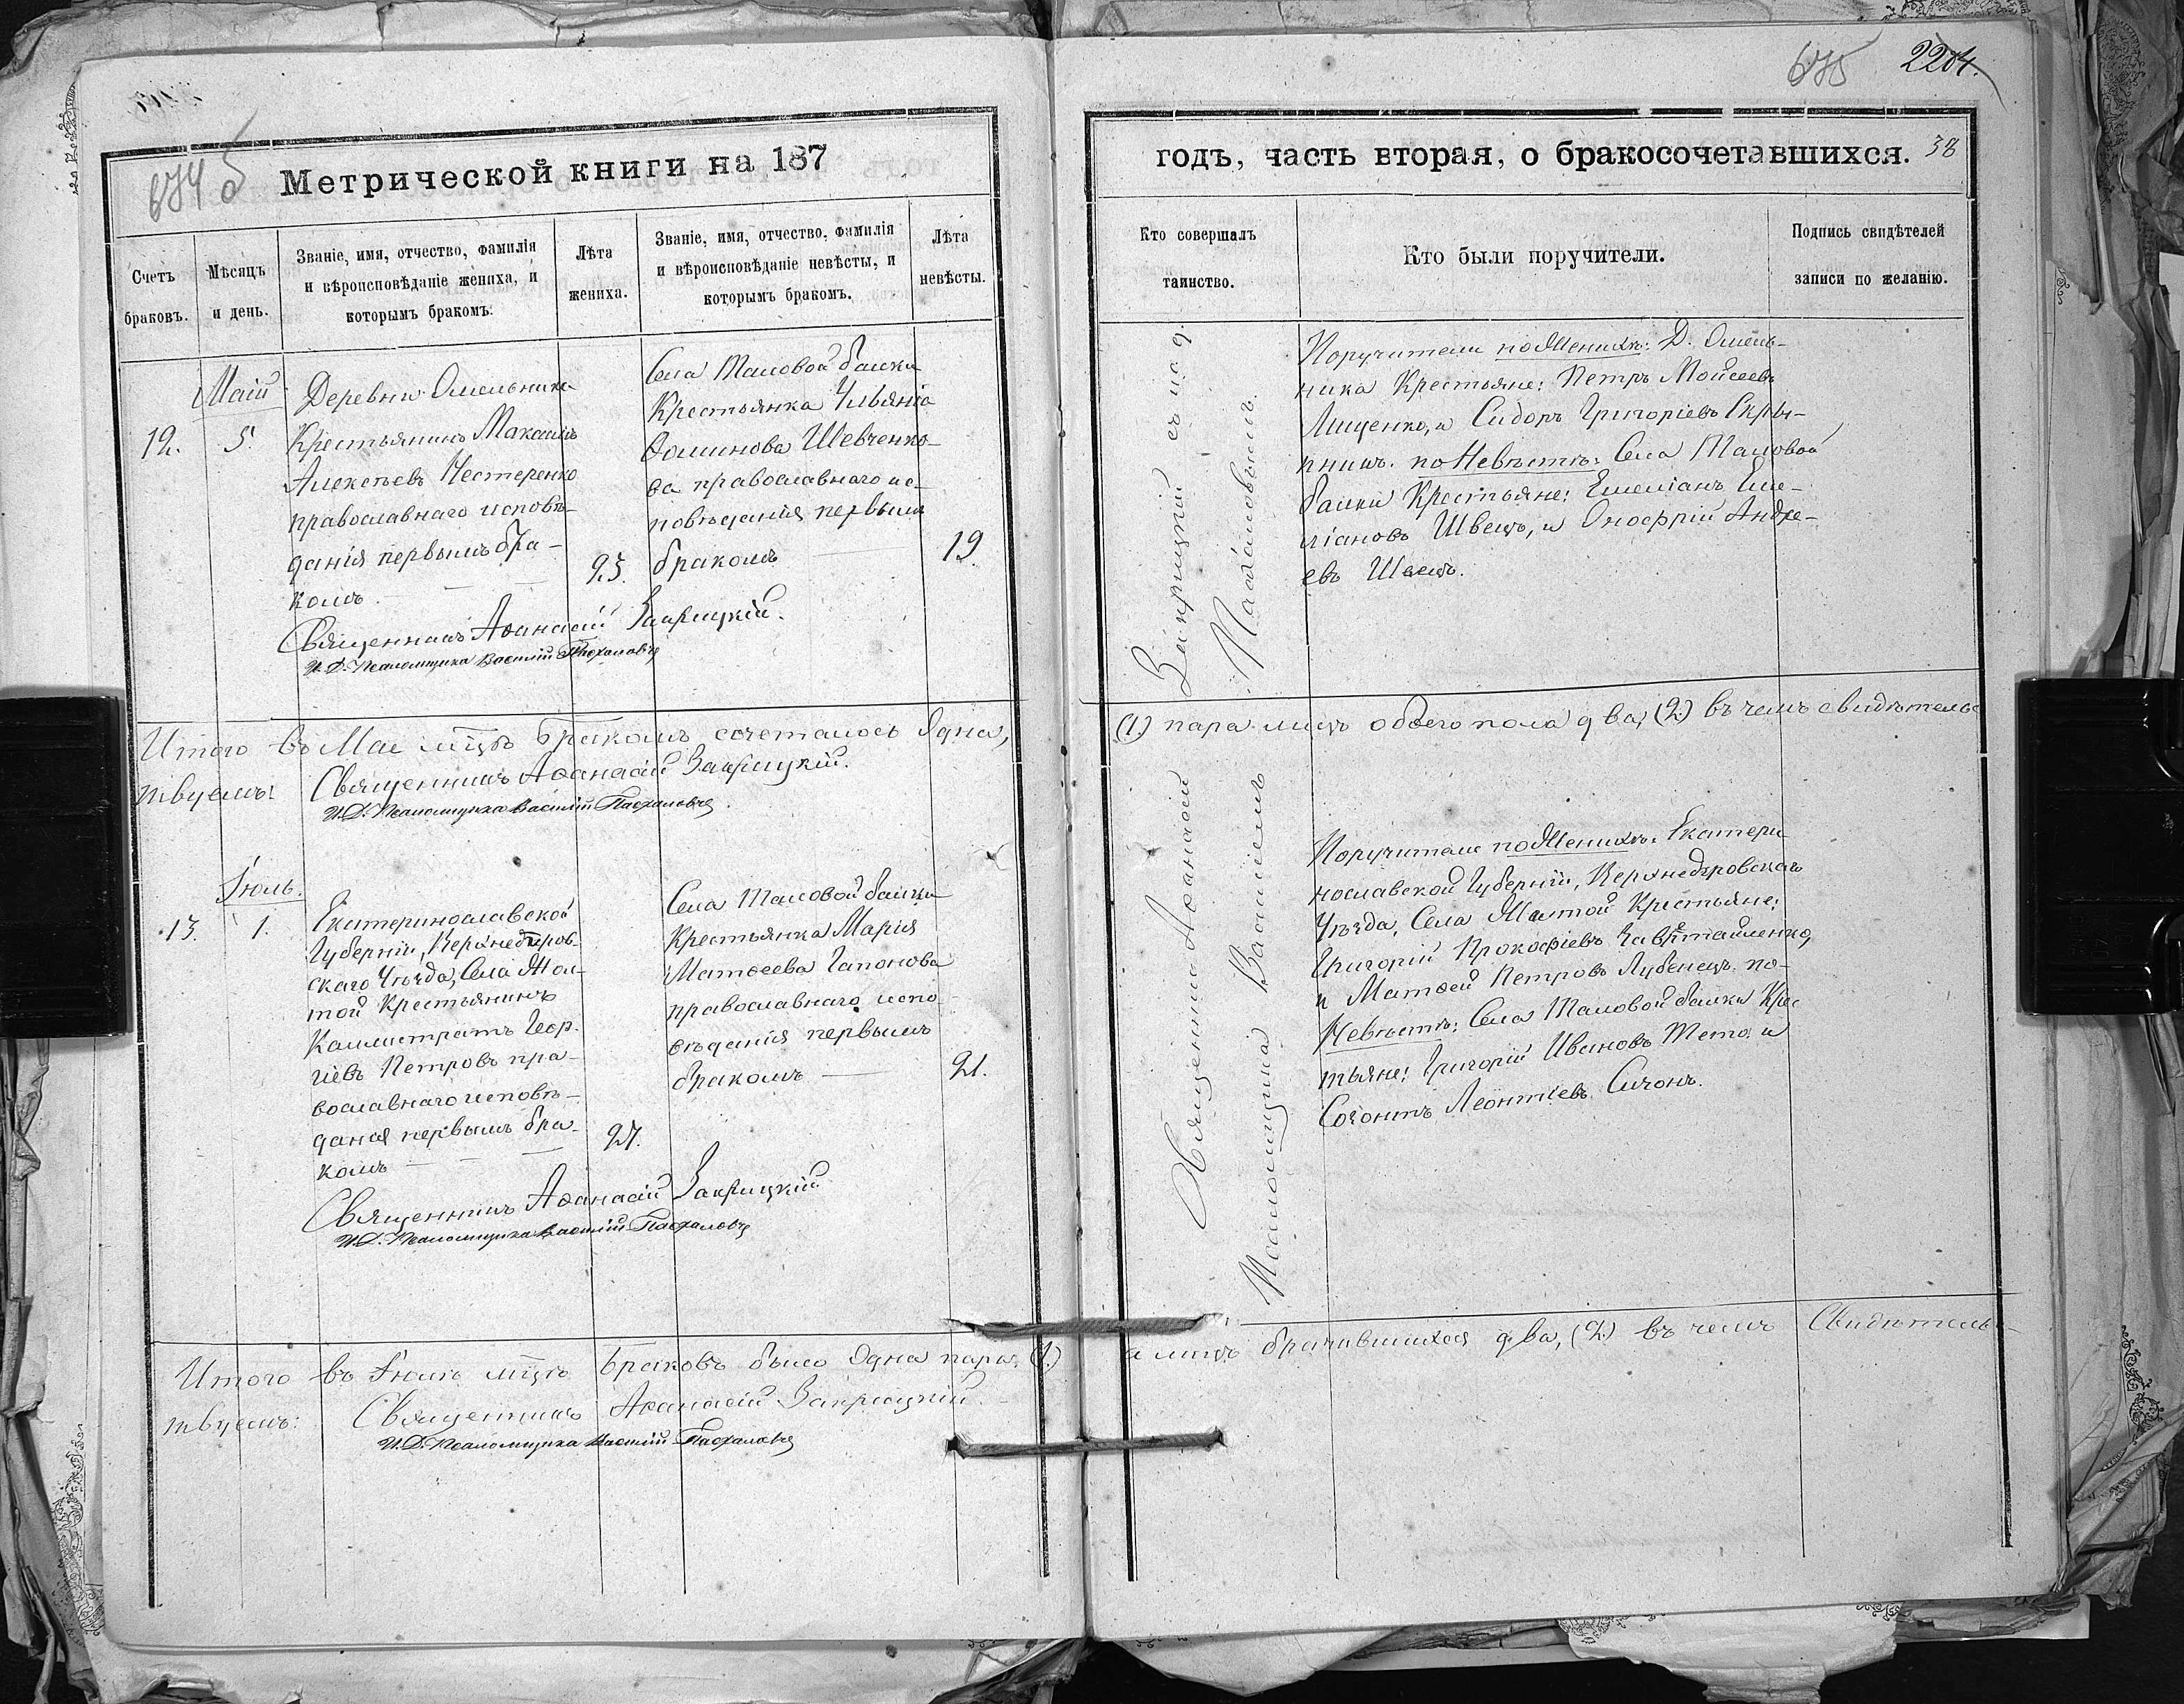 674 б
Метрической книги на 187
Счетъ
браковъ.
Мѣсяцъ
и день.
Званіе, имя, отчество, фамилія
и вѣроисповѣданіе жениха, и
которымъ бракомъ.
Лѣта
жениха.
Званіе, имя, отчество, фамилія
и вѣроисповѣданіе невѣсты, и
которымъ бракомъ.
Лѣта
невѣсты.
12.
Маій
5.
Деревни Омельника
Крестьянинъ Максимъ
Алексѣевъ Нестеренко
православнаго исповѣ-
данія первымъ бра-
комъ.
25.
Села Таловой балки
Крестьянка Ульянія
Фоминова Шевченко-
ва православнаго ис-
повѣданія первымъ
бракомъ
19.
Священникъ Аѳанасій Закрицкій.
И. Д. Псаломщика Василій Пасхаловъ
Итого въ Маѣ мцѣ бракомъ сочеталось Одна,
ствуемъ: Священникъ Аѳанасій Закрицкій.
И. Д. Псаломщика Василій Пасхаловъ.
13.
Іюль.
1.
Екатеринославской
Губерніи, Верхнеднѣпров-
скаго Уѣзда, Села Жол-
той Крестьянинъ
Каллистратъ Геор-
гіевъ Петровъ пра-
вославнаго исповѣ-
данія первымъ бра-
комъ
27.
Села Таловой балки
Крестьянка Марія
Матѳеева Гапонова
православнаго испо-
вѣданія первымъ
бракомъ
21.
Священникъ Аѳанасій Закрицкій
И. Д. Псаломщика Василій Пасхаловъ
Итого въ Іюлѣ мцѣ браковъ было Одна пара, (1.)
ствуемъ: Священникъ Аѳанасій Закрицкій.
И. Д. Псаломщика Василій Пасхаловъ
675 2204.
годъ, часть вторая, о бракосочетавшихся. 38
Кто совершалъ
таинство.
Кто были поручители.
Подпись свидѣтелей
записи по желанію.
Закрицкій съ и. д.
Пасхаловымъ.
Поручители по Женихѣ: Д. Омель-
ника Крестьяне: Петръ Мойсеевъ
Лищенко, и Сидоръ Григоріевъ Скры-
пникъ. по Невѣстѣ: Села Таловой
балки Крестьяне: Емеліанъ Еме-
ліановъ Швецъ, и Онофрій Андре-
евъ Швецъ.
(1.) пара лицъ обоего пола два, (2.) въ чемъ свидѣтельс
Священникъ Аѳанасій
Псаломщика Василіемъ
Поручители по Женихѣ: Екатери
нославской Губерніи, Верхнеднѣпровскаго
Уѣзда, Села Жолтой Крестьяне:
Григорій Прокофіевъ
и Матѳей Петровъ Лубенецъ. по
Невѣстѣ: Села Таловой балки Крес
тьяне: Григорій Ивановъ и
Созонтъ Леонтіевъ
а лицъ брачившихся два, (2.) въ чемъ Свидѣтель-